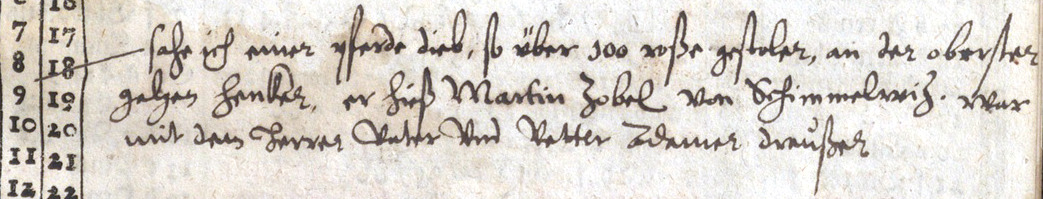 7 17
8 18
9 19
10 20
11 21
12 22
sahe ich einen pferde dieb, so über 100 roße gestolen, an den obersten
galgen henken, er hieß Martin Zobel von Schimmelwiz. war
mit dem Herren Vater und Vetter Adamen draußen